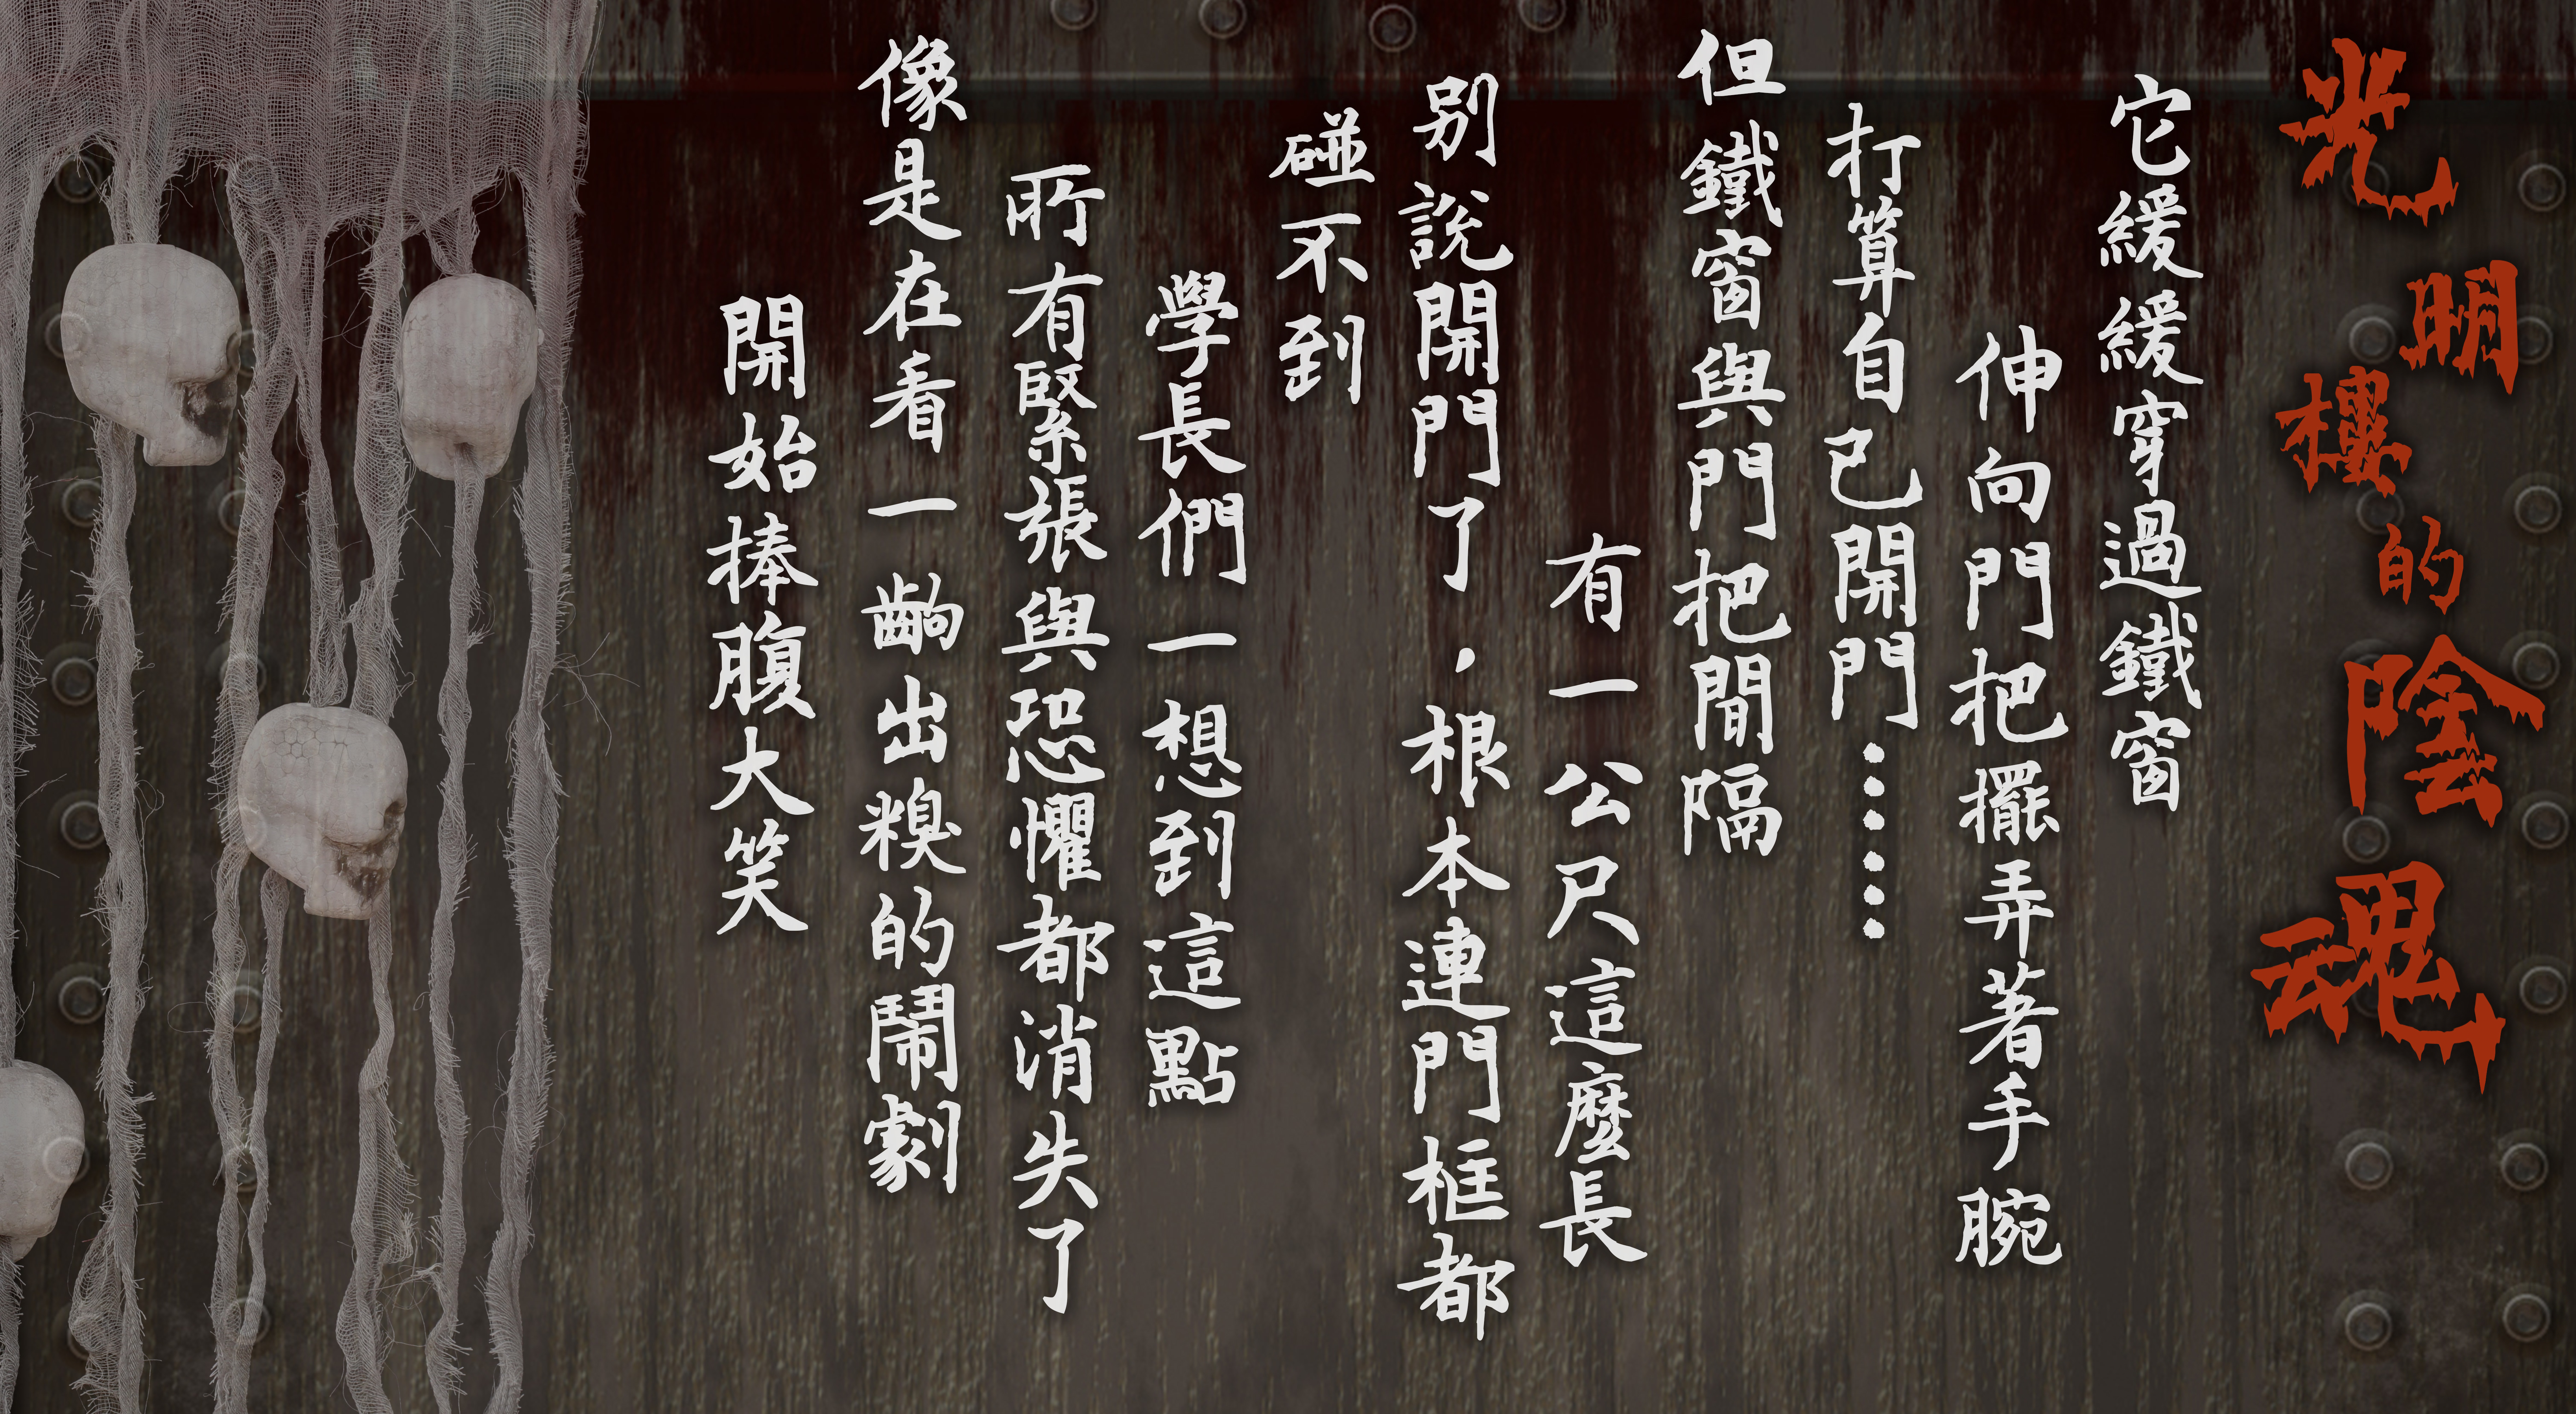 光明樓的陰魂
它緩緩穿過鐵窗
伸向門把擺弄著手腕
打算自己開門⋯⋯
但鐵窗與門把間隔
有一公尺這麼長
別說開門了，根本連門框都
碰不到
學長們一想到這點
所有緊張與恐懼都消失了
像是在看一齣出糗的鬧劇
開始捧腹大笑